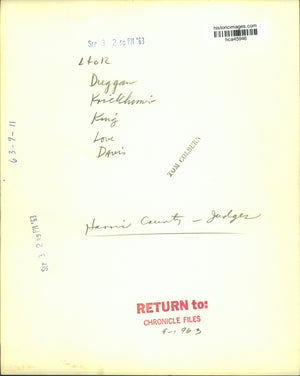 historicimages.com
hca45946
SEP 3 2 19 PM '63
L to R
Duggan
King
Love
Davis
TOM COLBURN
63-9-11
SEP 3 2 19 PM '63
Harris County - Judges
RETURN to:
CHRONICLE FILES
9-1963